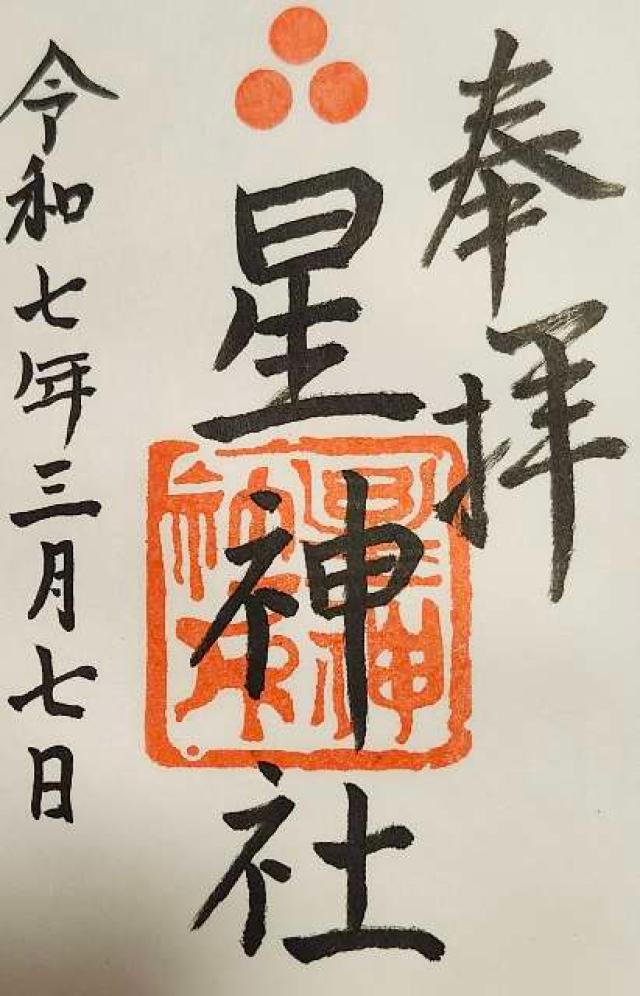 奉拝
星神社
令和七年三月七日